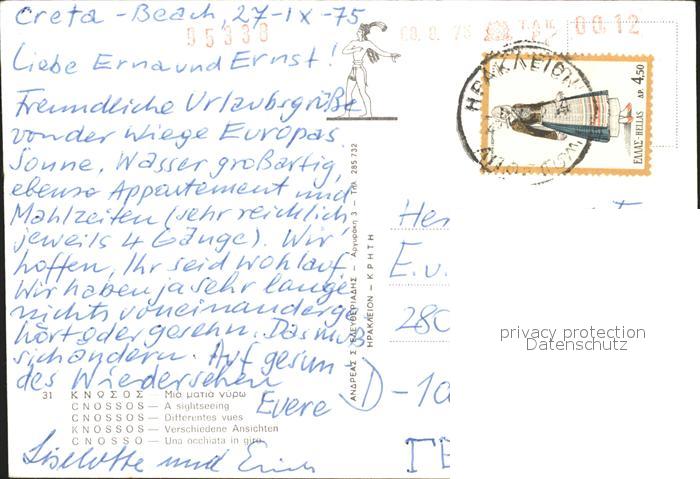 Creta - Beach, 27-IX-75
95338
00.12
Liebe Erna und Ernst!
Freundliche Urlaubsgrüße
von der Wiege Europas.
Sonne, Wasser großartig,
ebenso Appartement und
Mahlzeiten (sehr reichlich
jeweils 4 Gänge). Wir
hoffen, Ihr seid wohlauf.
Wir haben ja sehr lange
nichts voneinander ge-
hört oder gesehn. Das muß
sich ändern. Auf gesun-
des Wiedersehen
Euere
Liselotte und Erich
31 ΚΝΩΣΟΣ — Μιά ματιά γύρω
CNOSSOS — A sightseeing
CNOSSOS — Differentes vues
KNOSSOS — Verschiedene Ansichten
CNOSSO — Una occhiata in giro
ΑΝΔΡΕΑΣ Σ. ΕΛΕΥΘΕΡΙΑΔΗΣ — Αργυράκη 3 — Τηλ. 285 732
ΗΡΑΚΛΕΙΟΝ — ΚΡΗΤΗ
ΗΡΑΚΛΕΙΟΝ
ΕΛΛΑΣ-HELLAS
ΔΡ. 4.50
E. u.
280
D-
privacy protection
Datenschutz